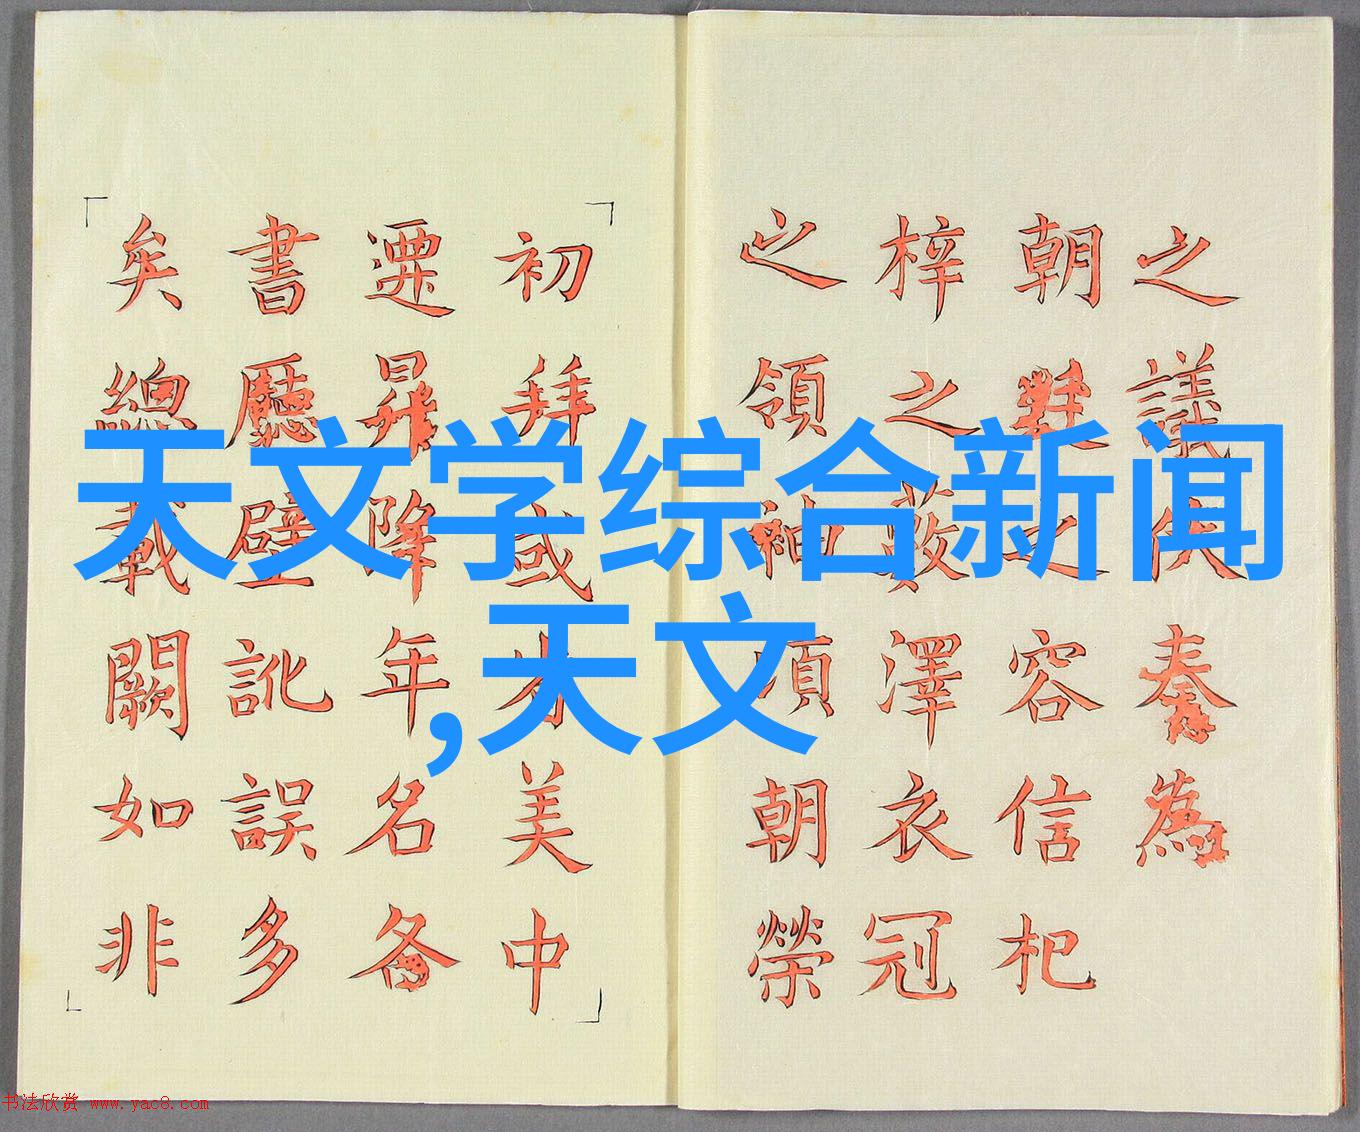 天文学综合新闻
,天文
之議奏為
朝之容信杞
梓之薮澤衣冠
之領袖朝榮
初拜或才美中
遷昇降年名备
書廳壁訛誤多
矣總載闕如非
书法欣赏 www.yac8.com